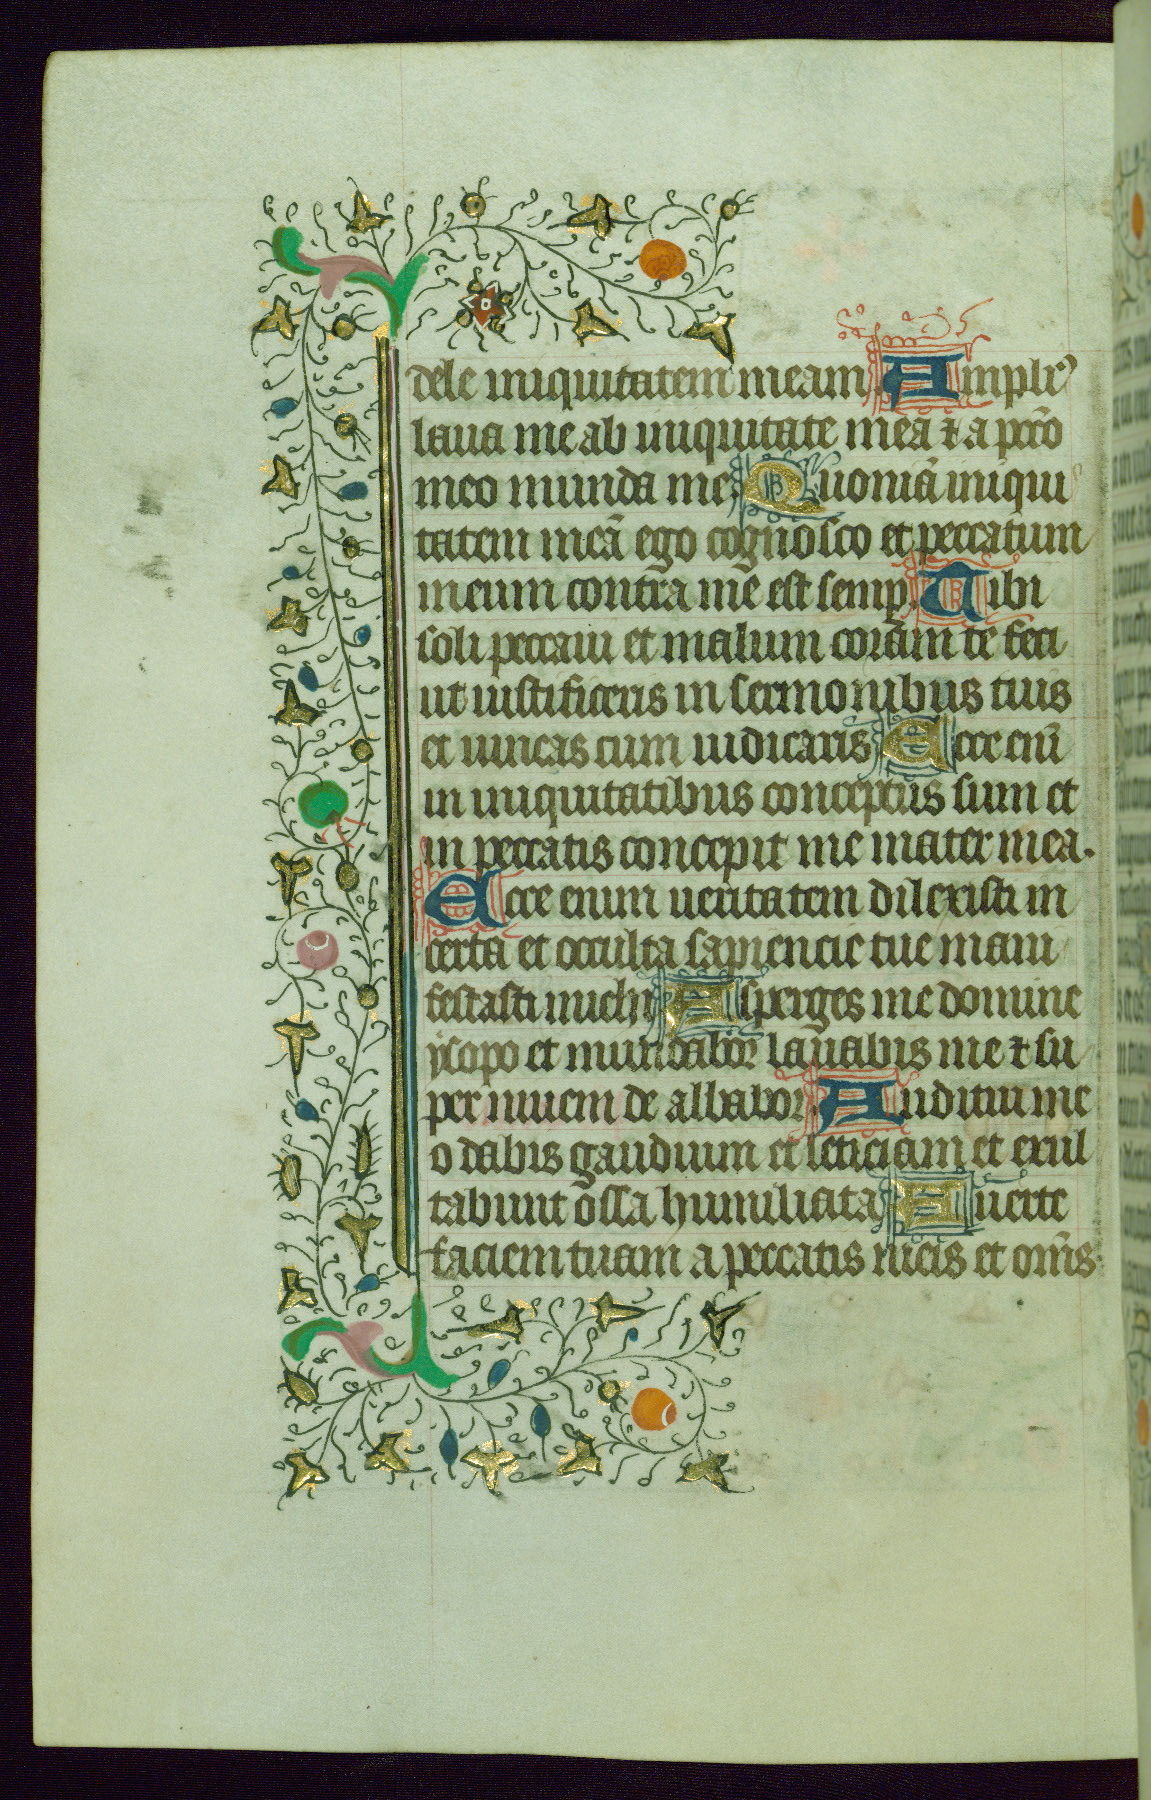 dele iniquitatem meam Amplꝰ
laua me ab iniquitate mea ⁊ a pccō
meo munda me. Quoniā iniqui
tatem meā ego cognosco et peccatum
meum contra me est semp. Tibi
soli peccaui et malum coram te feci
ut iustificeris in sermonibus tuis
et uincas cum iudicaris Ecce eni
in iniquitatibus conceptus sum et
in peccatis concepit me mater mea.
Ecce enim ueritatem dilexisti in
certa et occulta sapiencie tue mani
festasti michi Asperges me domine
ysopo et mundabor lauabis me ⁊ su
per niuem de albabor. Auditui me
o dabis gaudium et leticiam et exul
tabunt ossa humiliata Auerte
faciem tuam a peccatis meis et oms